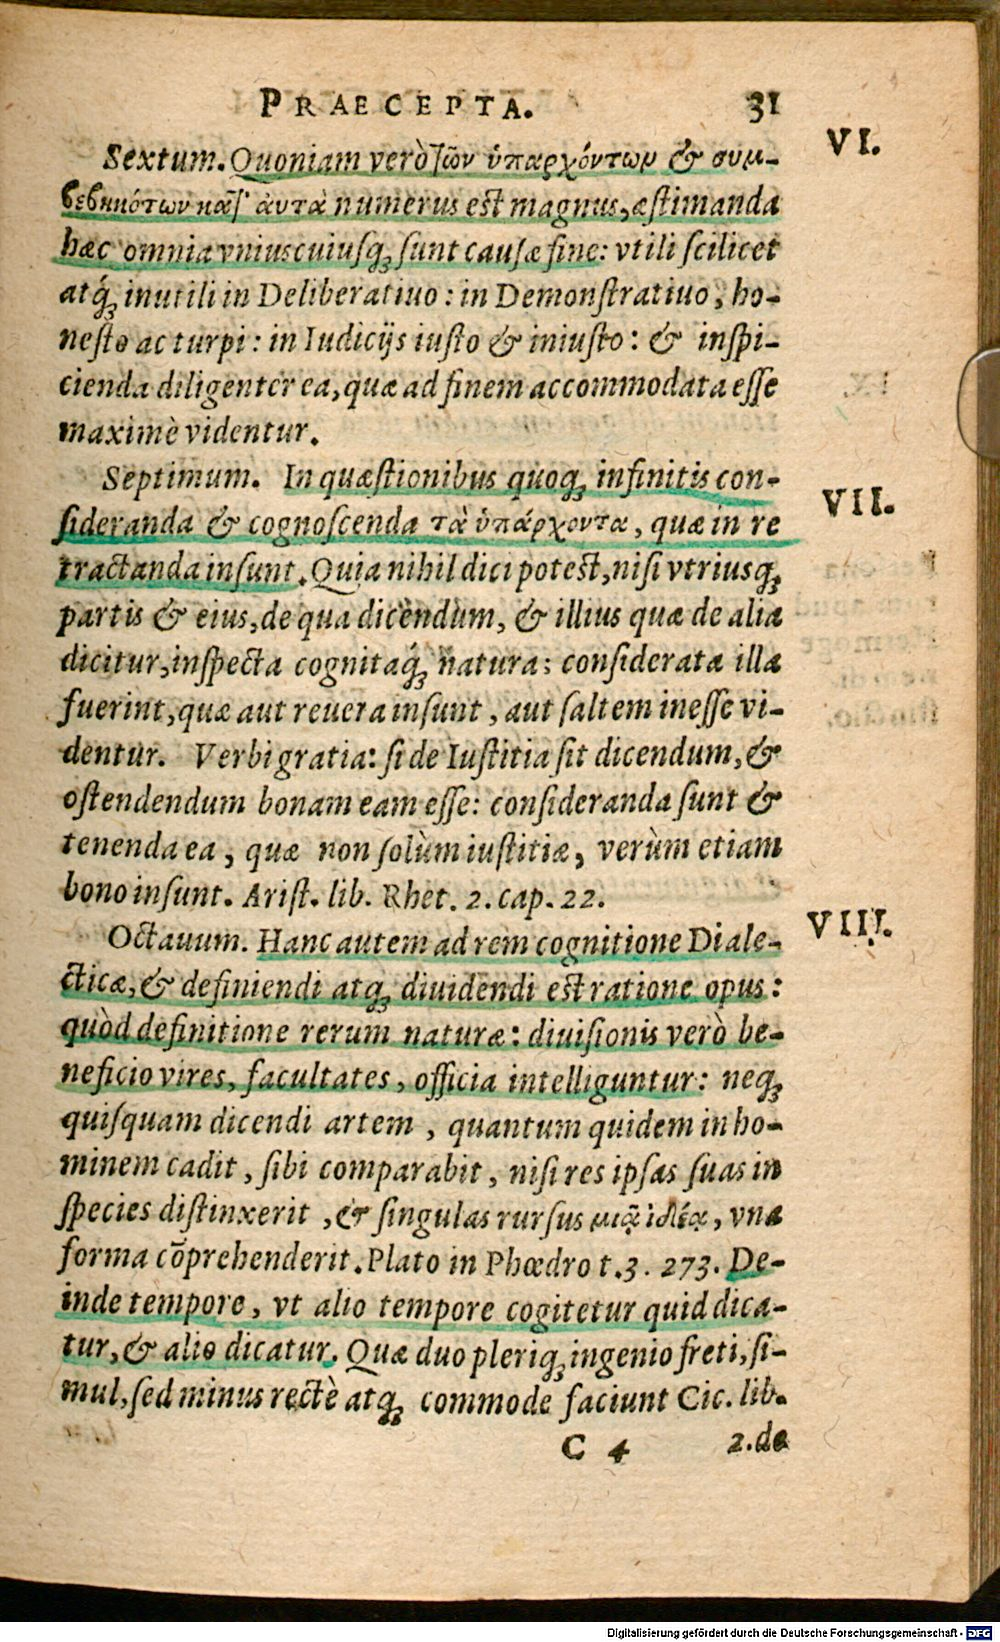 PRAECEPTA. 31
Sextum. Quoniam verò τῶν ὑπαρχόντων & συμ- VI.
βεβηκότων καθ' αὑτὰ numerus est magnus, æstimanda
hæc omnia vniuscuiusq; sunt causæ fine: vtili scilicet
atq́; inutili in Deliberatiuo: in Demonstratiuo, ho-
nesto ac turpi: in Iudicijs iusto & iniusto: & inspi-
cienda diligenter ea, quæ ad finem accommodata esse
maximè videntur.
Septimum. In quæstionibus quoq; infinitis con- VII.
sideranda & cognoscenda τὰ ὑπάρχοντα, quæ in re
tractanda insunt. Quia nihil dici potest, nisi vtriusq;
partis & eius, de qua dicendum, & illius quæ de alia
dicitur, inspecta cognitaq́; natura: considerata illa
fuerint, quæ aut reuera insunt, aut saltem inesse vi-
dentur. Verbi gratia: si de Iustitia sit dicendum, &
ostendendum bonam eam esse: consideranda sunt &
tenenda ea, quæ non solùm iustitiæ, verùm etiam
bono insunt. Arist. lib. Rhet. 2. cap. 22.
Octauum. Hanc autem ad rem cognitione Diale- VIII.
cticæ, & definiendi atq; diuidendi est ratione opus:
quòd definitione rerum naturæ: diuisionis verò be-
neficio vires, facultates, officia intelliguntur: neq;
quisquam dicendi artem, quantum quidem in ho-
minem cadit, sibi comparabit, nisi res ipsas suas in
species distinxerit, & singulas rursus μιᾷ ἰδέᾳ, vna
forma cōprehenderit. Plato in Phœdro t. 3. 273. De-
inde tempore, vt alio tempore cogitetur quid dica-
tur, & alio dicatur. Quæ duo pleriq; ingenio freti, si-
mul, sed minus rectè atq; commode faciunt Cic. lib.
C 4 2. de
Digitalisierung gefördert durch die Deutsche Forschungsgemeinschaft - DFG